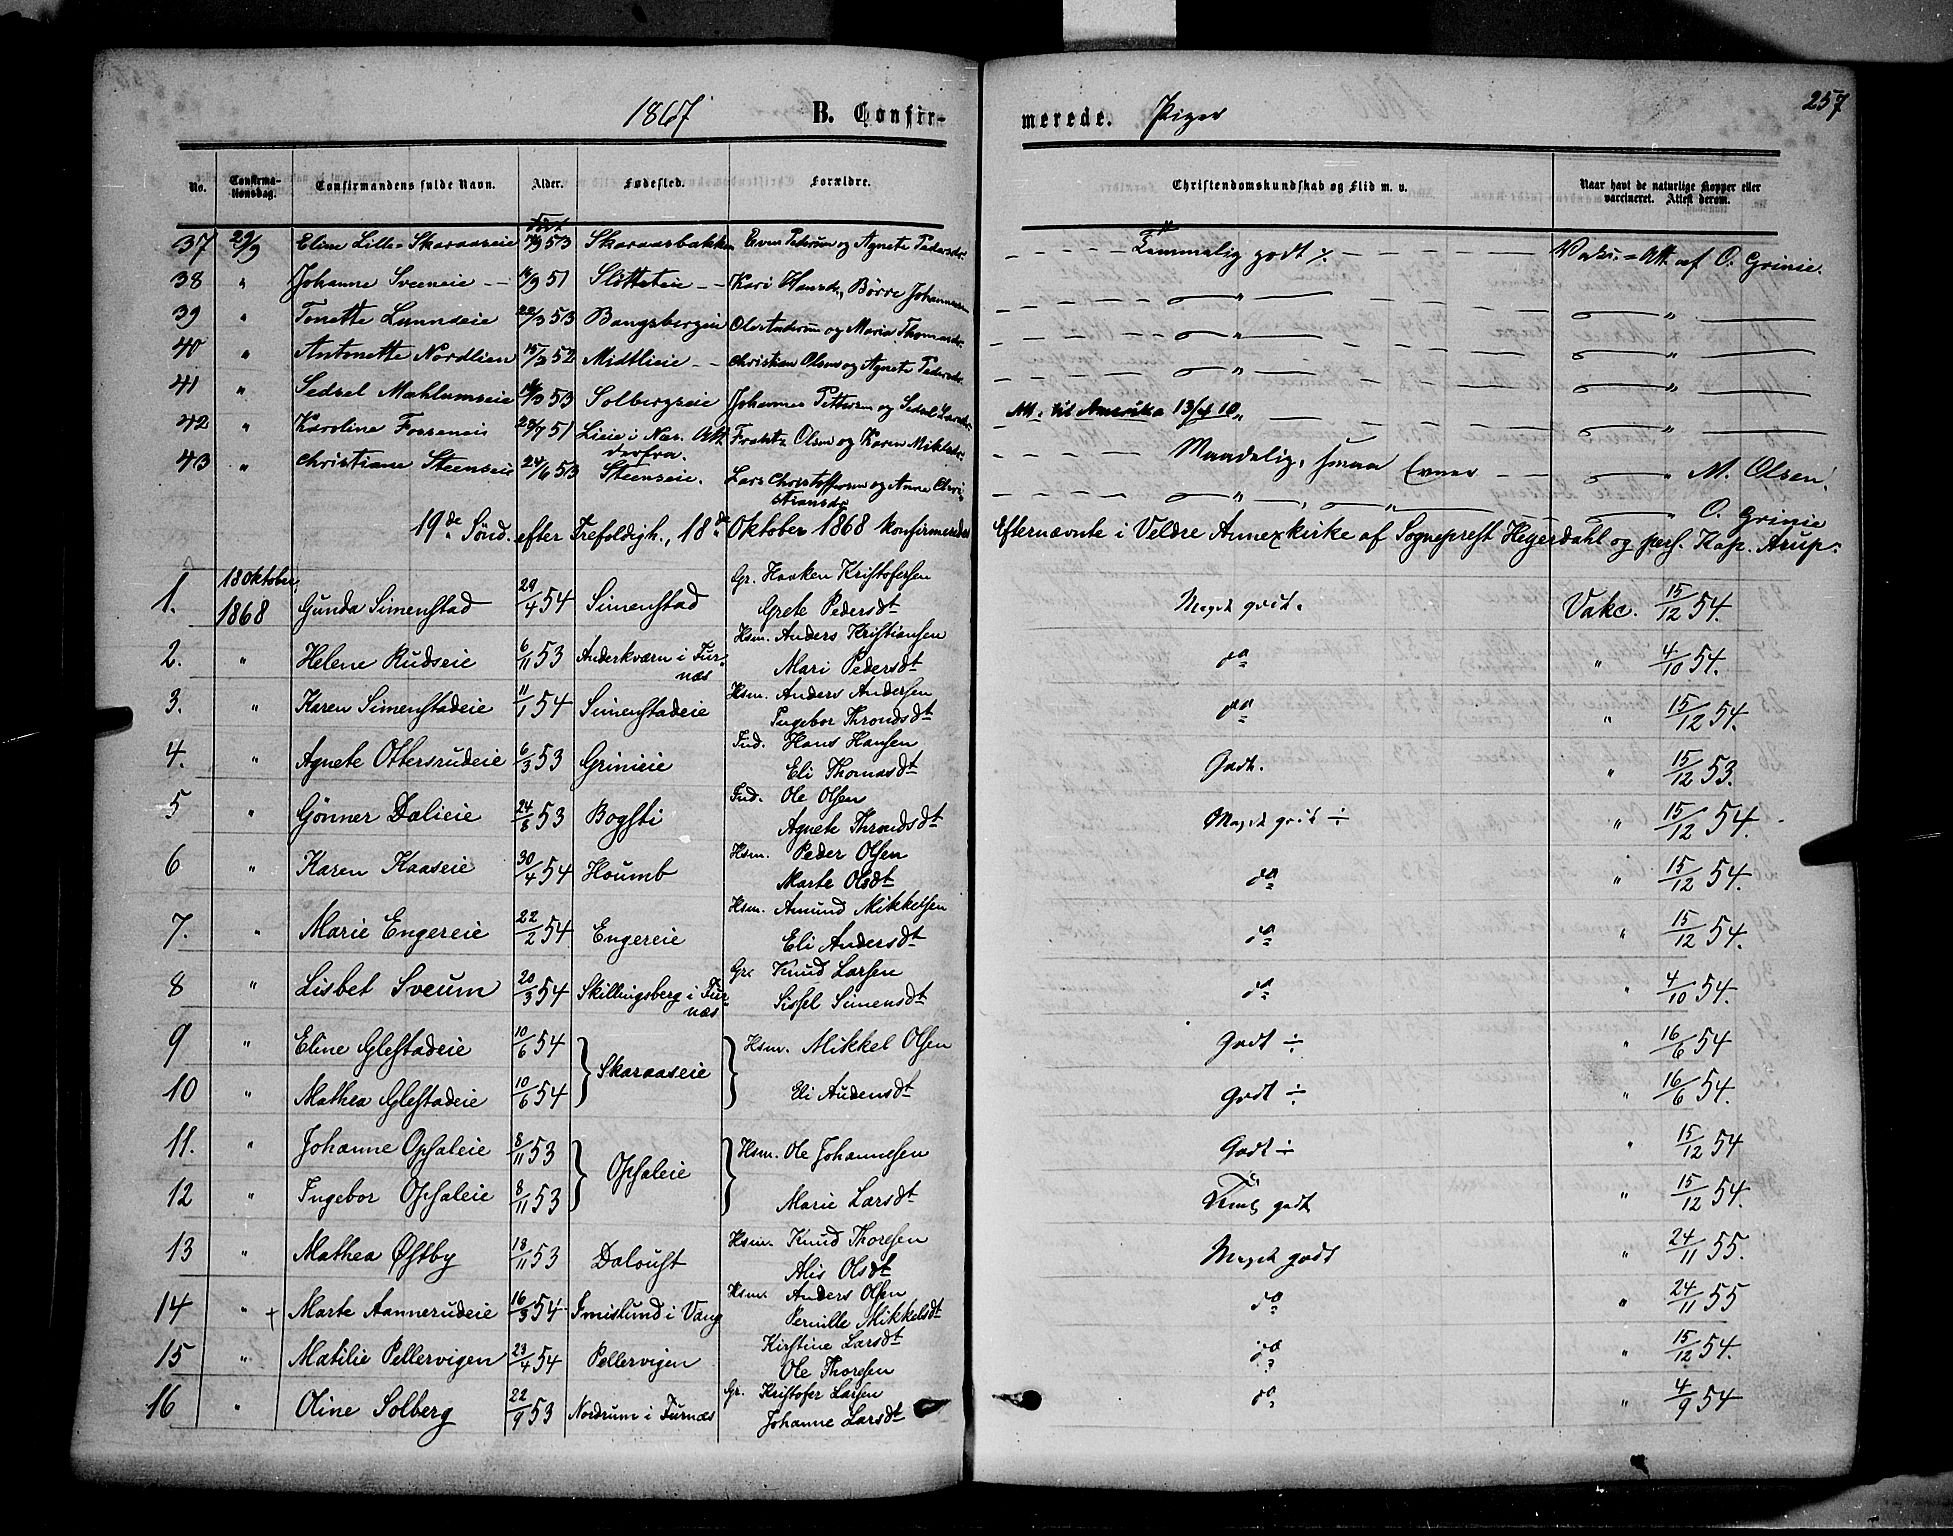 1867 B. Confirmerede. Piger 257
No. Confirmationsdag. Confirmandens fulde Navn. Alder. Fødested. Forældre. Christendomskundskab og Flid m. v. Naar havt de naturlige Kopper eller vaccineret. Attest derom.
37 29/9 Eline Lille-Skaraaseie 53 Skaraasbakken Even Pedersen og Agnete Pedersdr. Temmelig godt Vaks. Att. af O. Grinie.
38 " Johanne Sveeneie 51 Slötteteie Kari Hansdr., Börre Johannesen "
39 " Tonette Lunndeie 22/3 53 Bangsbergeie Ole Andersen og Maria Thomasdr. "
40 " Antonette Nordlien 52 Midtlieie Christian Olsen og Agnete Pedersdr. "
41 " Sedsel Mæhlumseie 53 Solbergseie Johannes Pettersen og Sedsel Larsdr. "
42 " Karoline Fosseneie 51 Lieie i Næs. Att. derfra. Frants Olsen og Karen Mikkelsdr. Att. til Amerika 13/4 10. "
43 " Christiane Steenseie 24/6 53 Steenseie. Lars Christoffersen og Anne Christiansdr Maadelig, smaa Evner " M. Olsen.
" " O. Grinie
19de Sönd. efter Trefoldigh., 18de Oktober 1868 konfirmeredes Efternævnte i Veldre Annexkirke af Sogneprest Heyerdahl og pers. Kap. Arup.
1. 18 Oktober 1868 Gunda Simenstad 29/4 54 Simenstad Gr. Haaken Kristofersen Grete Pedersdt Meget godt. Vakc. 15/12 54.
2. " Helene Rudseie 6/11 53 Anderkværn i Furnæs Hsm. Anders Kristiansen Mari Pedersdt do " 4/10 54.
3. " Karen Simenstadeie 11/1 54 Simenstadeie Hsm. Anders Andersen Ingebor Throndsdt do " 15/12 54.
4. " Agnete Ottersrudeie 6/3 53 Grinieie Ind. Hans Hansen Eli Thomasdt Godt. " 15/12 53.
5 " Gønner Dalieie 24/8 53 Bogsti Ind. Ole Olsen Agnete Throndsdt Meget godt ÷ " 15/12 54.
6 " Karen Kaaseie 30/4 54 Houmb Hsm. Peder Olsen Marte Olsdt do " 15/12 54.
7. " Marie Engereie 22/2 54 Engereie Hsm. Amund Mikkelsen Eli Andersdt do " 15/12 54.
8 " Lisbet Sveum 20/3 54 Skillingsberg i Furnæs Gr. Knud Larsen Sissel Simensdt do " 4/10 54.
9 " Eline Glestadeie 10/6 54 Skaraaseie Hsm. Mikkel Olsen Godt ÷ " 16/6 54
10 " Mathea Glestadeie 10/6 54 Eli Audensdt Godt ÷ " 16/6 54.
11. " Johanne Opsaleie 8/11 53 Opsaleie Hsm. Ole Johannesen Godt ÷ " 15/12 54
12 " Ingebor Opsaleie 8/11 53 Marie Larsdt godt " 15/12 54.
13 " Mathea Østby 18/11 53 Daloust Hsm. Knud Thoresen Alis Olsdt Meget godt " 24/11 55.
14 " + Marte Aannerudeie 16/3 54 Smislund i Vang Hsm. Anders Olsen Pernille Mikkelsdt do " 24/11 55
15 " Matilie Pellervigen 23/4 54 Pellervigen Kirstine Larsdt Ole Thoresen do " 15/12 54.
16 " Oline Solberg 22/9 53 Nordrum i Furnæs Gr. Kristofer Larsen Johanne Larsdt do " 4/9 54